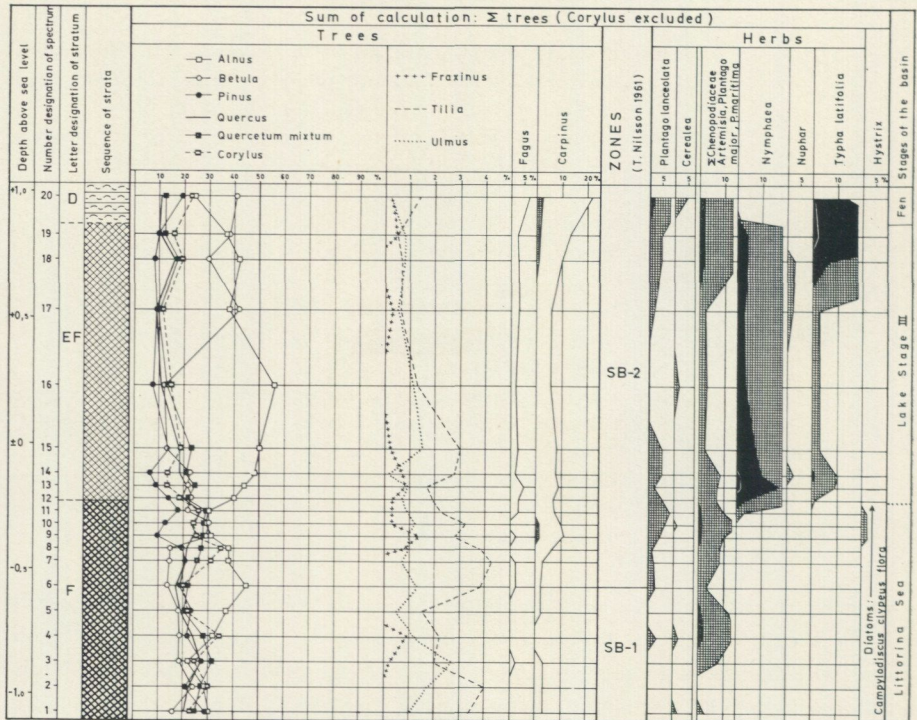 Sum of calculation: Σ trees (Corylus excluded)
Trees
Herbs
Depth above sea level
Number designation of spectrum
Letter designation of stratum
Sequence of strata
Alnus
Betula
Pinus
Quercus
Quercetum mixtum
Corylus
Fraxinus
Tilia
Ulmus
Fagus
Carpinus
ZONES
(T. Nilsson 1961)
Plantago lanceolata
Cerealea
ΣChenopodiaceae
Artemisia, Plantago
major, P.maritima
Nymphaea
Nuphar
Typha latifolia
Hystrix
Stages of the basin
10 20 30 40 50 60 70 80 90 %
1 2 3 4 %
5 %
10 20 %
5 5 5 10 5 10 5 %
+1,0
+0,5
±0
-0,5
-1,0
20
19
18
17
16
15
14
13
12
11
10
9
8
7
6
5
4
3
2
1
D
EF
F
SB-2
SB-1
Fen
Lake Stage III
Littorina Sea
Diatoms:
Campylodiscus clypeus flora